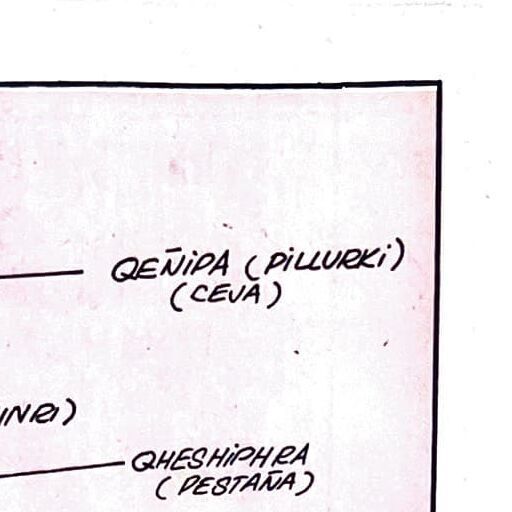 QEÑiPA (PiLLURKi)
(CEJA)
INRI)
QHESHiPHRA
(PESTAÑA)